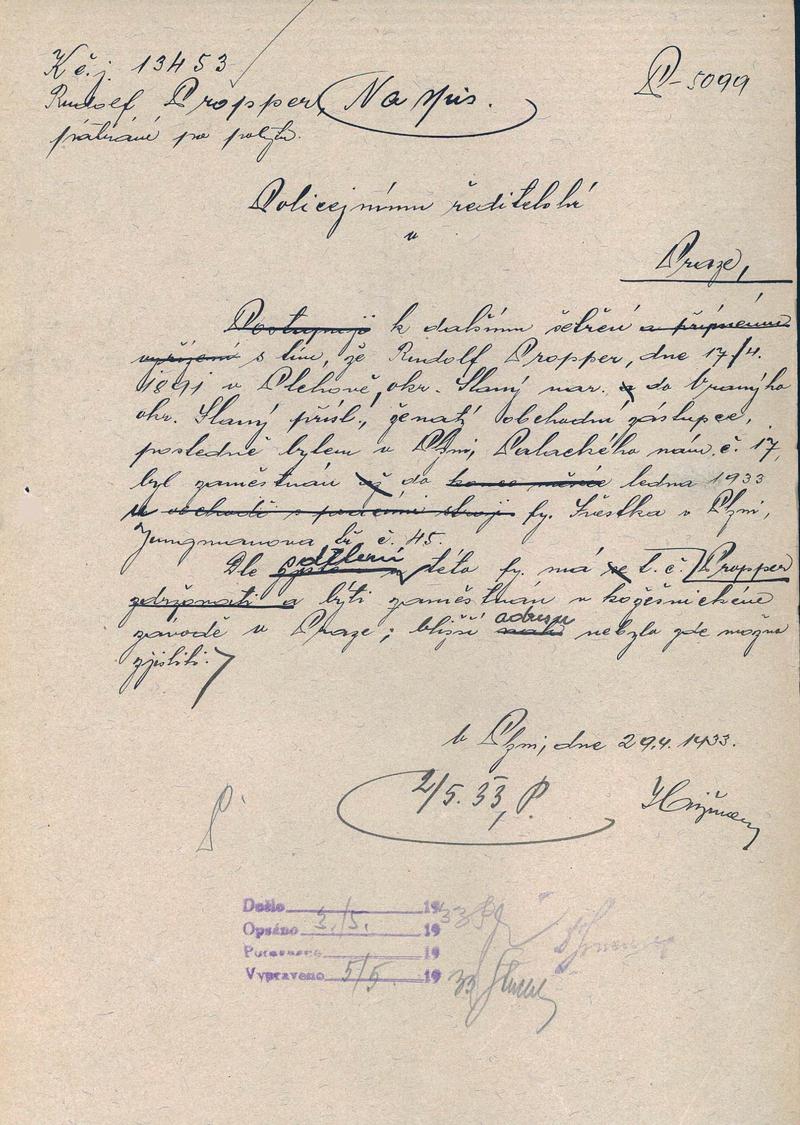 K č.j. 13453
P-5099
Rudolf Propper, Na spis.
pátrání po pobytu.
Policejnímu ředitelství
v
Praze,
Postupuji k dalšímu šetření a případnému
vyřízení s tím, že Rudolf Propper, dne 17/4.
1891 v Plchově, okr. Slaný nar. a do Vraného
okr. Slaný přísl., ženatý obchodní zástupce,
posledně bytem v Plzni, Palackého nám. č. 17,
byl zaměstnán až do konce měsíce ledna 1933
v obchodě s psacími stroji fy. Svěstka v Plzni,
Jungmanova tř. č. 45.
sdělení
Dle této fy. má se t. č. Propper
zdržovati a býti zaměstnán v kožešnickém
adresu
závodě v Praze; bližší nebylo zde možno
zjistiti.
V Plzni, dne 29.4. 1933.
2/5. 33, P.
Došlo 19
Opsáno 3./5. 1933
Porovnáno 19
Vypraveno 5/5 1933